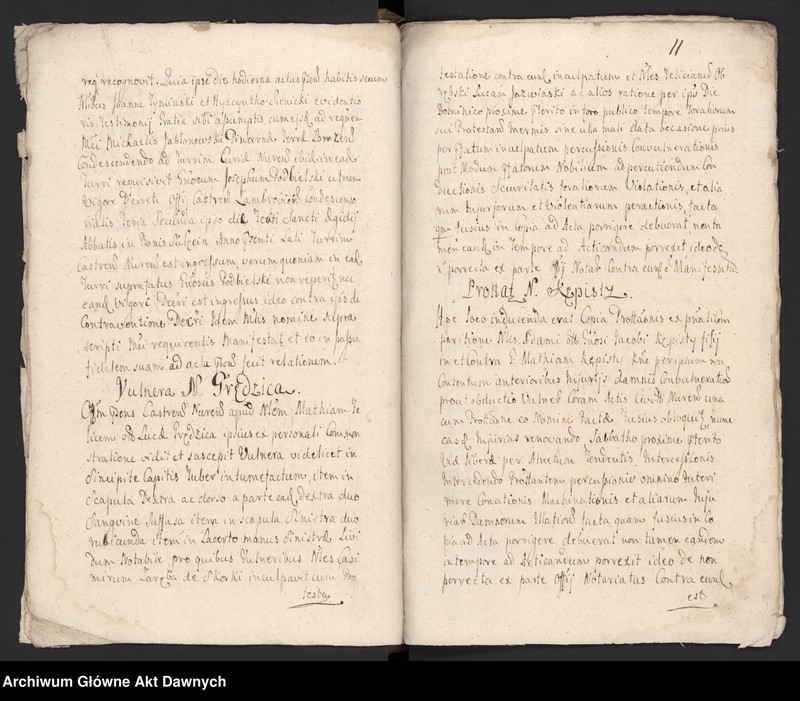 reg recognovit. Quia ipse die hodierna actus habitis secum
Nlibus Joanne Tyminski et Hyacyntho Sienicki evidentio
ris testimonij gratie sibi assumptis cumq ad
Mci Michaelis Jabłonowski Pincernæ Terræ
Condescendendo ad Turrim Civid Nuren ibid in ead
Turri requisivit Gnosum Josephum Podbielski utrum
vigore Decreti Offi Castren Condescenso
rialis feria secunda ipso die Festi Sancti Egidij
Abbatis in Bonis Anno lati Turrim
Castren Nuren est ingressum verum quoniam in ead
Turri suprafatus Gnosus Podbielski non reperit nec
eand vigore Decri est ingressus, ideo contra
Contraventione Decri Idem Mlis nomine supra
scripti Mci requirentis Manifestat et eo in passu
fidelem suam ad acta fecit relationem.
Vulnera N. Grędzica.
Offm Castren Nuren apud Nlem Mathiam Fe
licem Lucæ Grędzica ipsius ex personali Commen
stratione vidit et suscepit vulnera videlicet in
Sincipite Capitis Tuber intumefactum, item in
Scapula Dextra ac dorso a parte ead dextra duo
Sanguine suffusa item in scapula Sinistra duo
rubicunda item in Lacerto manus Sinistræ Livi
dum Notabile pro quibus Vulneribus Nles Casi
mirum Zaręba de Skorki inculpavit cum Pro
testa
11
testatione contra eund inculpatum et Nles Felicianum Ob
rębski Lucam Jaźwinski ac alios ratione per Die
Dominico proxime in foro publico tempore foraliorum
sui Protestan inermis sine ulla mali data occasione prius
per inculpatum percussionis Convulnerationis
post Modum Nobilium ad percutiendum Con
ductionis Securitatis foraliorum Violationis, et alia
rum Injuriarum et violentiarum peractionis, facta
qm fusius in Copia ad Acta porrigere debuerat non ta
men eand in Tempore ad Acticandum porrexit ideo de
porrecta ex parte Offij Notar Contra eund Manifestatio
Prottat N. Kępisty.
Hoc loco inducenda erat Copia Prottaonis ex
paritione Nles Adami Gnosi Jacobi Kępisty filij
in et Contra G Mathiam Kępisty Rne per ipsum non
Contentum anterioribus Injurijs damnis Convulneration
prout obductio Vulner Coram Actis Civilib Nuren una
cum Prottane eo Nomine factæ fusius obloquit, nunc
eas Injurias renovando Sabbatho proxime
Viæ liberæ per Tendentis Intercessionis
Intercedendo Prottantem percussionis omnino Interi
mere Conationis Machinationis et aliarum Inju
riar Damnorum Illation facta quam fusius in Co
pia ad Acta porrigere debuerat non tamen eandem
in tempore ad Acticandum porrexit ideo de non
porrecta ex parte Offij Notariatus Contra eund
est
Archiwum Główne Akt Dawnych